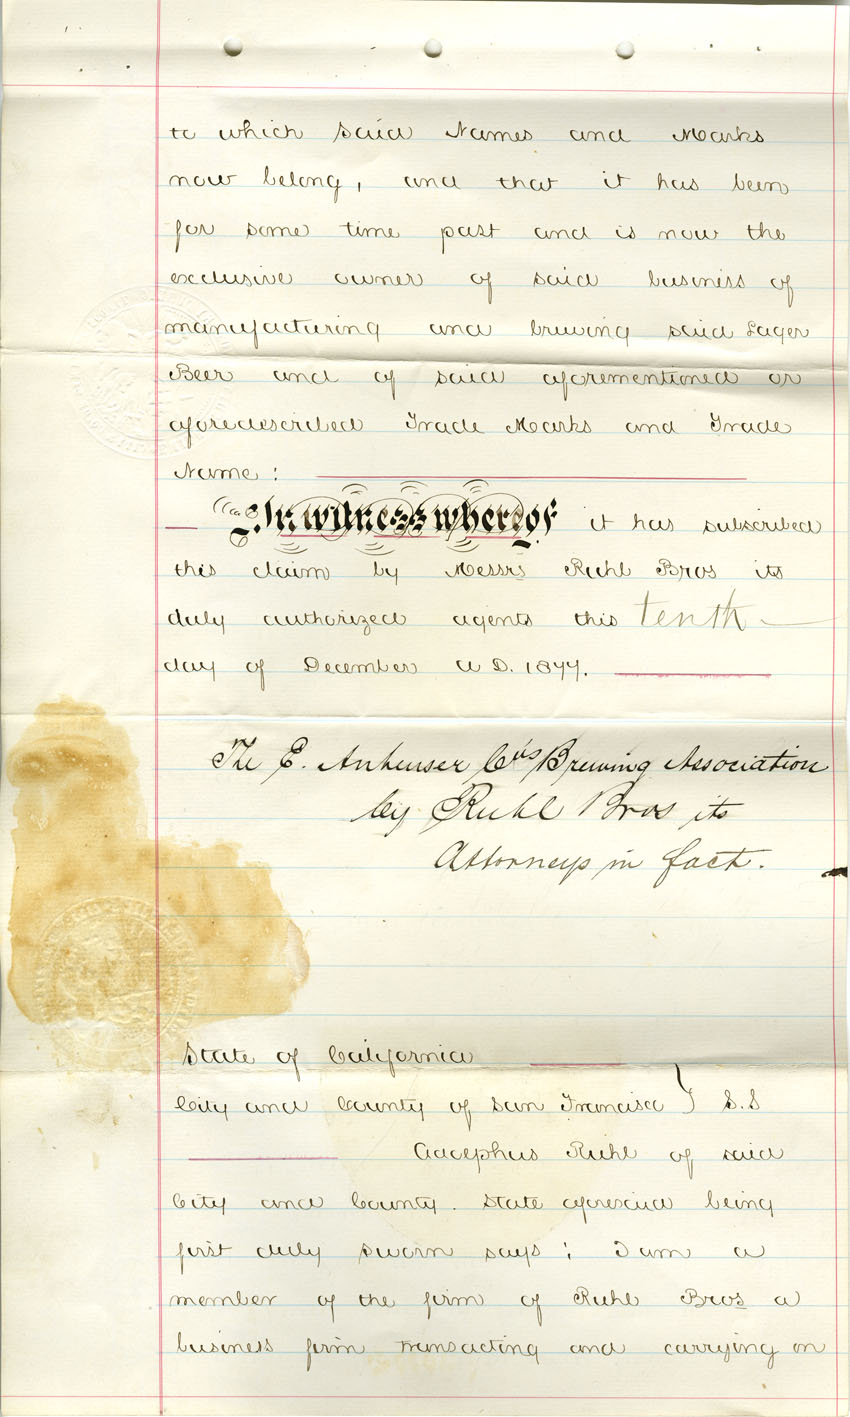 to which said Names and Marks
now belong, and that it has been
for some time past and is now the
exclusive owner of said business of
manufacturing and brewing said Lager
Beer and of said aforementioned or
aforedescribed Trade Marks and Trade
Name:
In witness whereof it has subscribed
this claim by Messrs Ruhl Bros its
duly authorized agents this tenth
day of December A D. 1877.
The E. Anheuser Co's Brewing Association
by Ruhl Bros its
Attorneys in fact.
State of California
City and County of San Francisco } S.S
Adolphus Ruhl of said
City and County. State aforesaid being
first duly sworn says; I am a
member of the firm of Ruhl Bros a
business firm transacting and carrying on